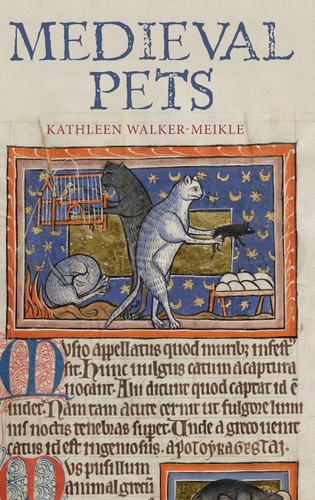 MEDIEVAL
PETS
KATHLEEN WALKER-MEIKLE
Musio appellatus quod murib; infest
sit. Hunc uulgus catum a captura
uocant. Alii dicunt quod captat id ē
uidet. Nam tam acute cernit ut fulgore lumi
nis noctis tenebras super. Unde a greco uenit
catus id est ingeniosus.
Mus pusillum
animal grecū